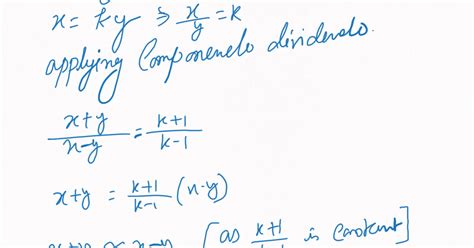 x = ky ⇒ x/y = k
applying Componendo dividendo.
x+y/x-y = k+1/k-1
x+y = k+1/k-1 (x-y)
x+y ∝ x-y [as k+1/k-1 is constant]